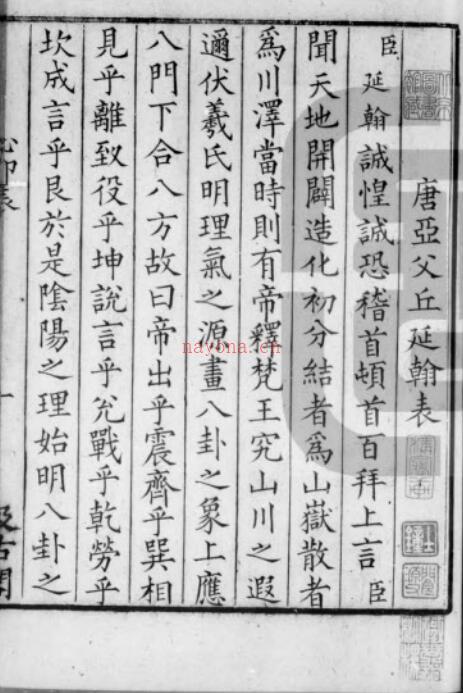 唐亞父丘延翰表
臣延翰誠惶誠恐稽首頓首百拜上言臣
聞天地開闢造化初分結者爲山嶽散者
爲川澤當時則有帝釋梵王究山川之遐
邇伏羲氏明理氣之源畫八卦之象上應
八門下合八方故曰帝出乎震齊乎巽相
見乎離致役乎坤說言乎兊戰乎乾勞乎
坎成言乎艮於是陰陽之理始明八卦之
nayona.cn